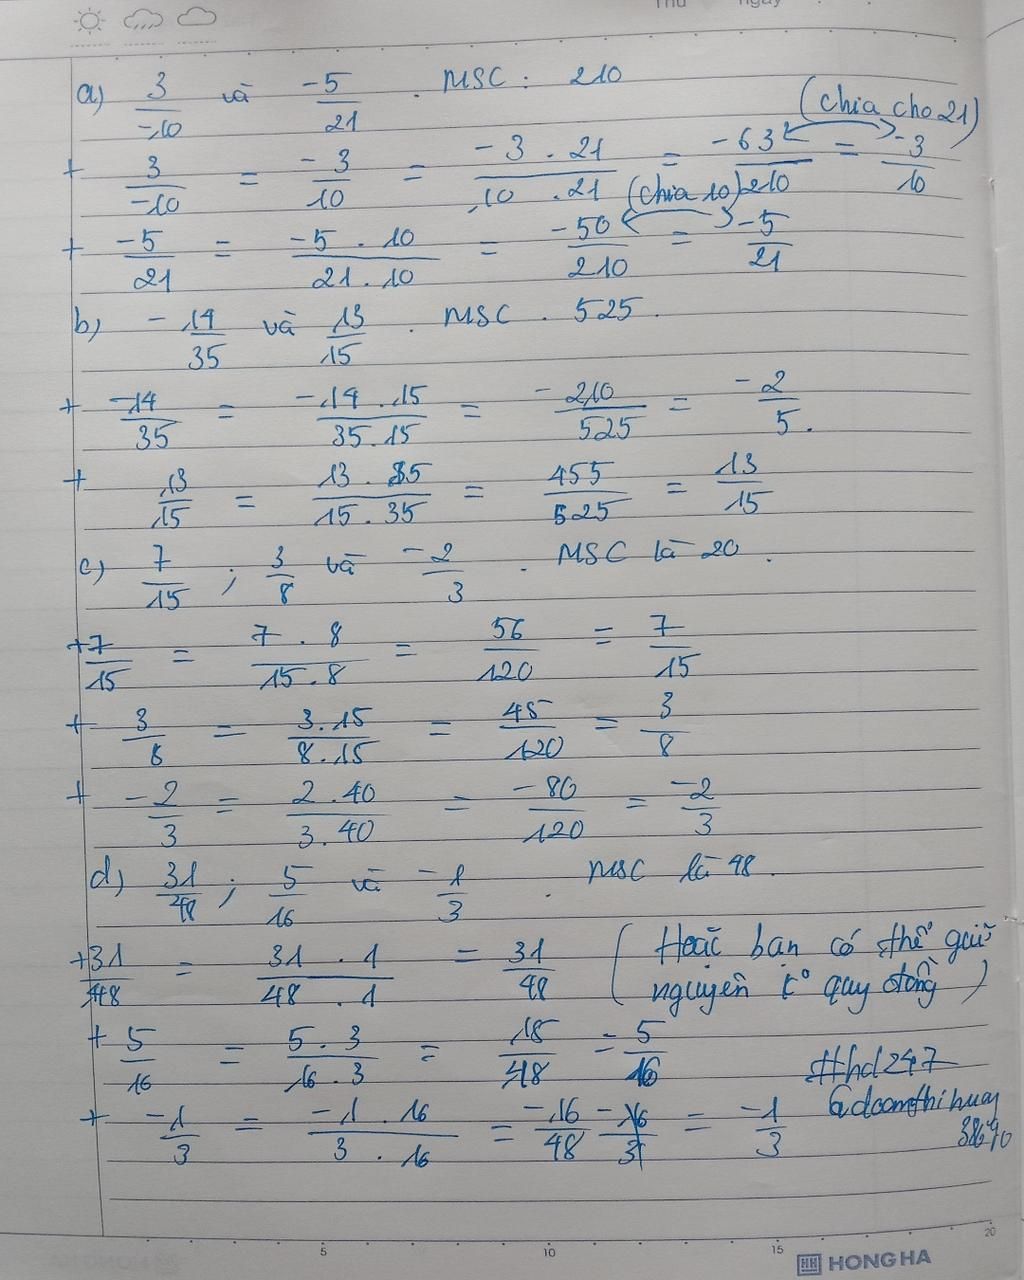 Thứ ngày
a) 3/-10 và -5/21 . MSC : 210
(chia cho 21)
+ 3/-10 = -3/10 = -3 . 21/10 . 21 = -63/210 = -3/10
(chia 10)
+ -5/21 = -5 . 10/21 . 10 = -50/210 = -5/21
b) -14/35 và 13/15 . MSC . 525 .
+ -14/35 = -14 . 15/35 . 15 = -210/525 = -2/5 .
+ 13/15 = 13 . 35/15 . 35 = 455/525 = 13/15
c) 7/15 ; 3/8 và -2/3 . MSC là 20 .
+ 7/15 = 7 . 8/15 . 8 = 56/120 = 7/15
+ 3/8 = 3 . 15/8 . 15 = 45/120 = 3/8
+ -2/3 = 2 . 40/3 . 40 = -80/120 = -2/3
d) 31/48 ; 5/16 và -1/3 . MSC là 48 .
+ 31/48 = 31 . 1/48 . 1 = 31/48 (Hoặc bạn có thể giữ
nguyên k° quy đồng)
+ 5/16 = 5 . 3/16 . 3 = 15/48 = 5/16
#hd247
+ -1/3 = -1 . 16/3 . 16 = -16/48 = -1/3
5 10 15 20
HH HONG HA